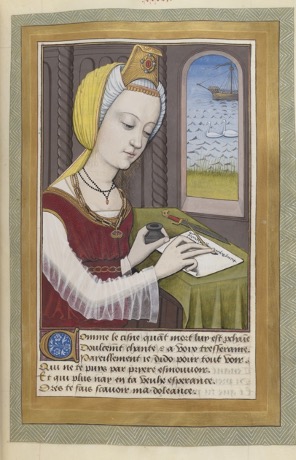 Comme le cisne quāt mort luy est prochaine
Doulcemēt chante & a voix tresseraine
Pareillement ie dido pour tout voir
Qui ne te puys par pryere esmouvoir
Et qui plus nay en ta
 esperance.
Ores te fais scavoir ma doleance.